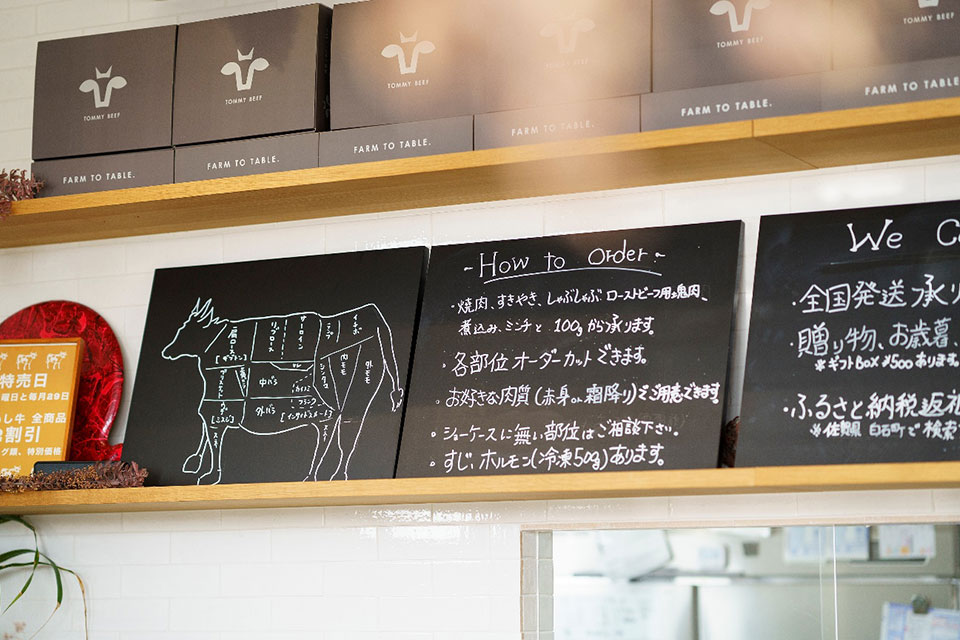 TOMMY BEEF
TOMMY BEEF
TOMMY BEEF
TOMMY BEEF
TOMMY BEEF
FARM TO TABLE.
FARM TO TABLE.
FARM TO TABLE.
FARM TO TABLE.
FARM TO TABLE.
FARM TO TABLE.
特売日
曜日と毎月29日
し牛 全商品
割引
特別価格
肩ロース
リブロース
サーロイン
ランプ
イチボ
中バラ
外バラ
内モモ
外モモ
シンタマ
ヒレ
スネ
スネ
- How to order -
・焼肉、すきやき、しゃぶしゃぶ ローストビーフ用塊肉、
煮込み、ミンチと 100gから承ります。
・各部位オーダーカットできます。
・お好きな肉質(赤身or霜降り)でご用意できます
・ショーケースに無い部位はご相談下さい。
・すじ、ホルモン(冷凍50g)あります。
We
・全国発送承り
・贈り物、お歳暮、
※ギフトBOX ¥500あります
・ふるさと納税返礼
※佐賀県 白石町で検索